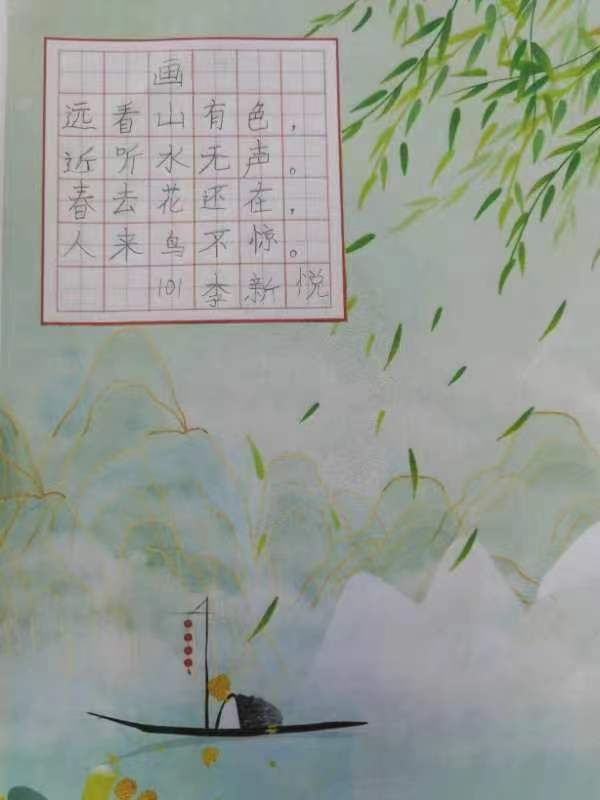 画
远看山有色，
近听水无声。
春去花还在，
人来鸟不惊。
101 李新悦